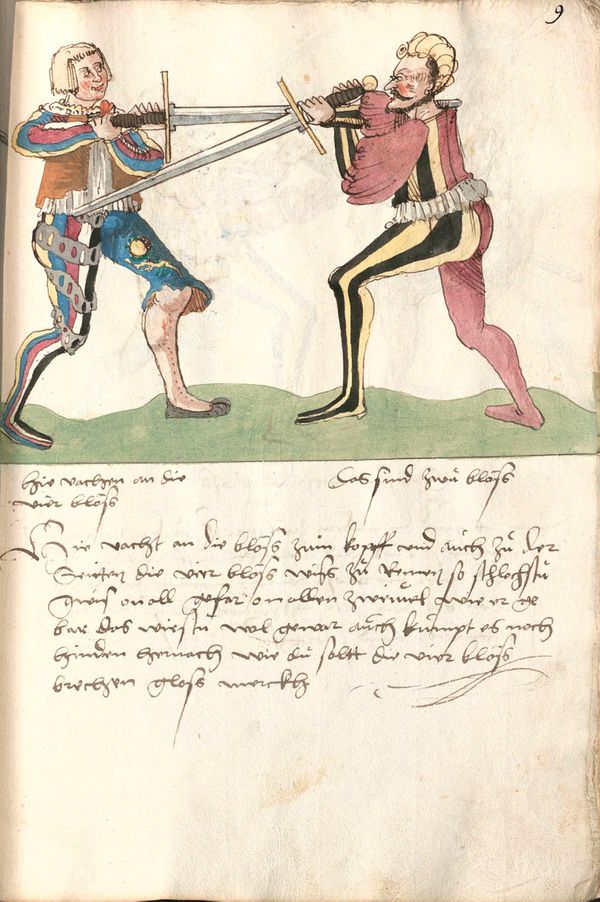 9
hie vachen an die
vier blöss
das sind zwu blöss
Hie vacht an die blöss zum kopff und auch zu der
Seiten die vier blöss wiss zu Remen so schlechstu
gwis on all gefar on allen zweiuel wie er ge
bar das wirstu wol gewar auch kumpt es noch
hinden hernach wie du soltt die vier blöss
brechen gloss merckh